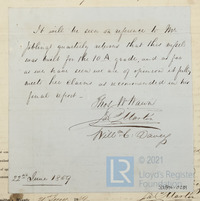 It will be seen on reference to Mr
Jibling's quarterly returns that this vessel
was built for the 10 A grade, and as far
as we have seen we are of opinion is fully
meets her claims as recommended in his
final report.
Jas. C. Martin
Will. C. Davey
22nd June 1869
© 2021
Lloyd's Register
Foundation